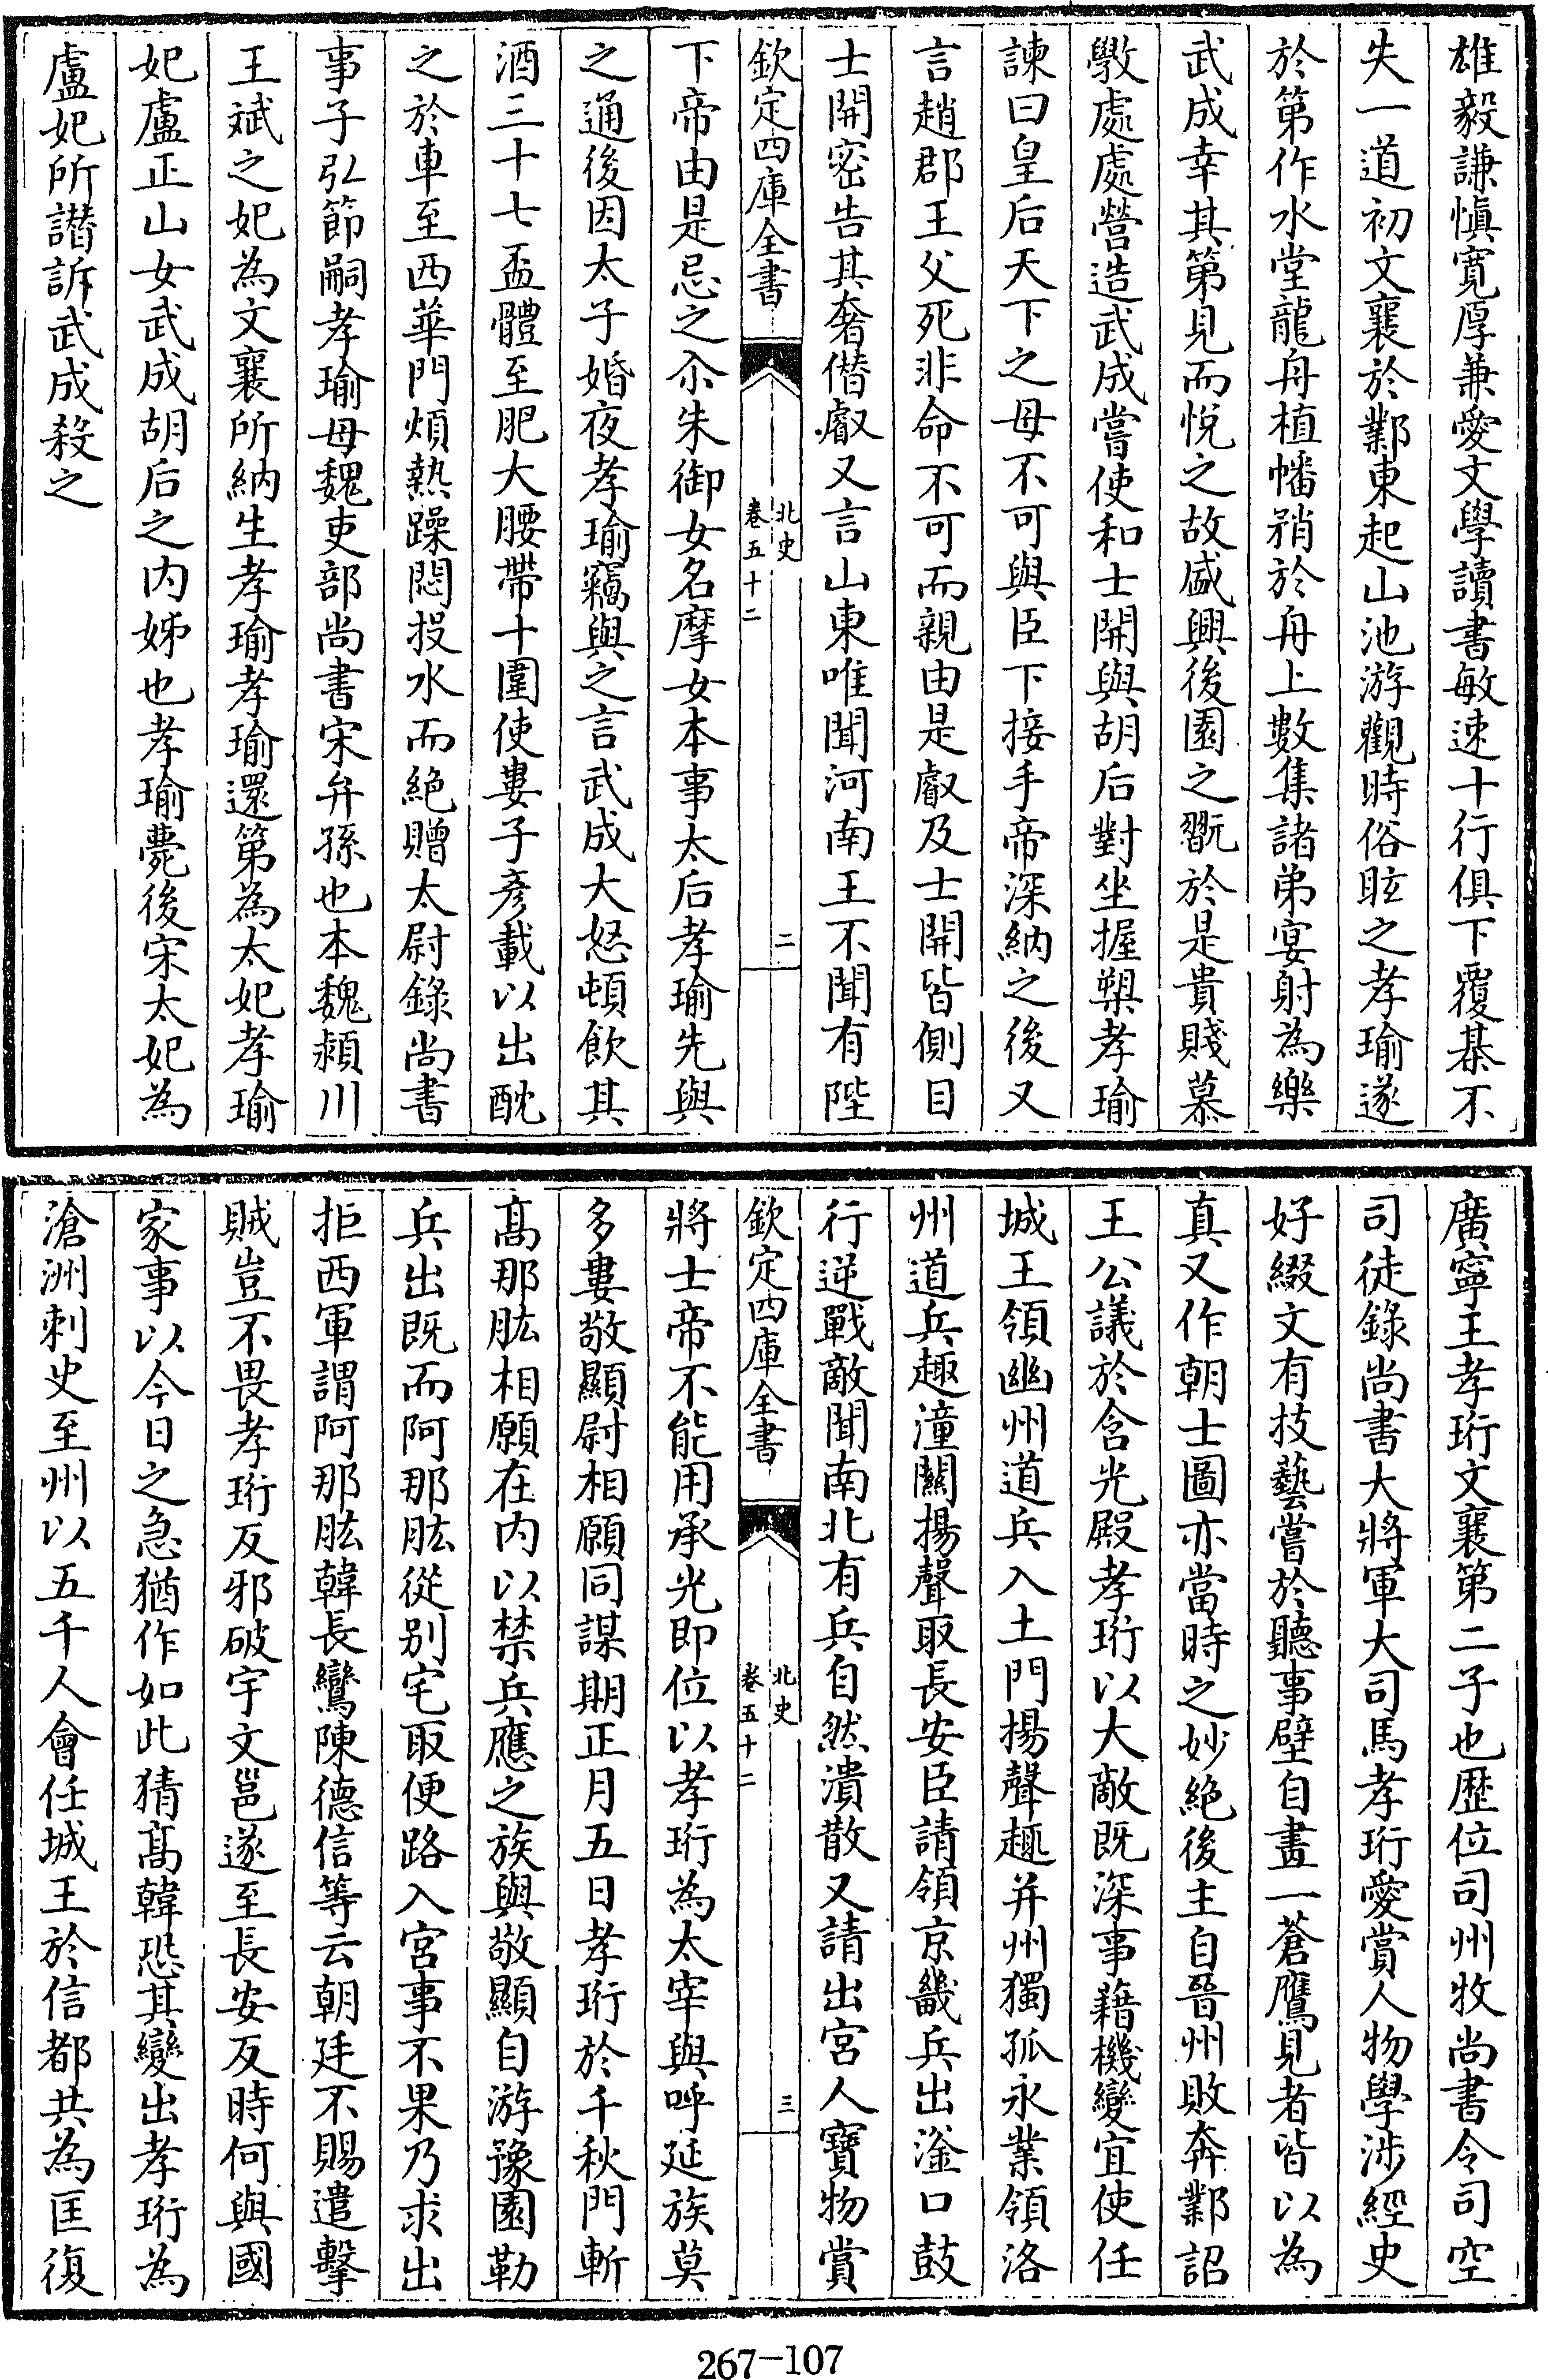 雄毅謙慎寛厚兼愛文學讀書敏速十行俱下覆棊不
失一道初文襄於鄴東起山池游觀時俗眩之孝瑜遂
於第作水堂龍舟植幡矟於舟上數集諸弟宴射為樂
武成幸其第見而悦之故盛興後園之翫於是貴賤慕
斆處處營造武成嘗使和士開與胡后對坐握槊孝瑜
諫曰皇后天下之母不可與臣下接手帝深納之後又
言趙郡王父死非命不可而親由是叡及士開皆側目
士開密告其奢僭叡又言山東唯聞河南王不聞有陛
欽定四庫全書 北史 卷五十二 二
下帝由是忌之尒朱御女名摩女本事太后孝瑜先與
之通後因太子婚夜孝瑜竊與之言武成大怒頓飲其
酒三十七盃體至肥大腰帶十圍使婁子彦載以出酖
之於車至西華門煩熱躁悶投水而絶贈太尉錄尚書
事子弘節嗣孝瑜母魏吏部尚書宋弁孫也本魏潁川
王斌之妃為文襄所納生孝瑜孝瑜還第為太妃孝瑜
妃盧正山女武成胡后之内姊也孝瑜薨後宋太妃為
盧妃所譖訴武成殺之
廣寧王孝珩文襄第二子也歴位司州牧尚書令司空
司徒錄尚書大將軍大司馬孝珩愛賞人物學涉經史
好綴文有技藝嘗於聽事壁自畫一蒼鷹見者皆以為
真又作朝士圖亦當時之妙絶後主自晉州敗奔鄴詔
王公議於含光殿孝珩以大敵既深事藉機變宜使任
城王領幽州道兵入土門揚聲趣并州獨孤永業領洛
州道兵趣潼關揚聲取長安臣請領京畿兵出滏口鼓
行逆戰敵聞南北有兵自然潰散又請出宮人寶物賞
欽定四庫全書 北史 卷五十二 三
將士帝不能用承光即位以孝珩為太宰與呼延族莫
多婁敬顯尉相願同謀期正月五日孝珩於千秋門斬
髙那肱相願在内以禁兵應之族與敬顯自游豫園勒
兵出既而阿那肱從别宅取便路入宮事不果乃求出
拒西軍謂阿那肱韓長鸞陳德信等云朝廷不賜遣擊
賊豈不畏孝珩反邪破宇文邕遂至長安反時何與國
家事以今日之急猶作如此猜髙韓恐其變出孝珩為
滄洲刺史至州以五千人會任城王於信都共為匡復
267-107